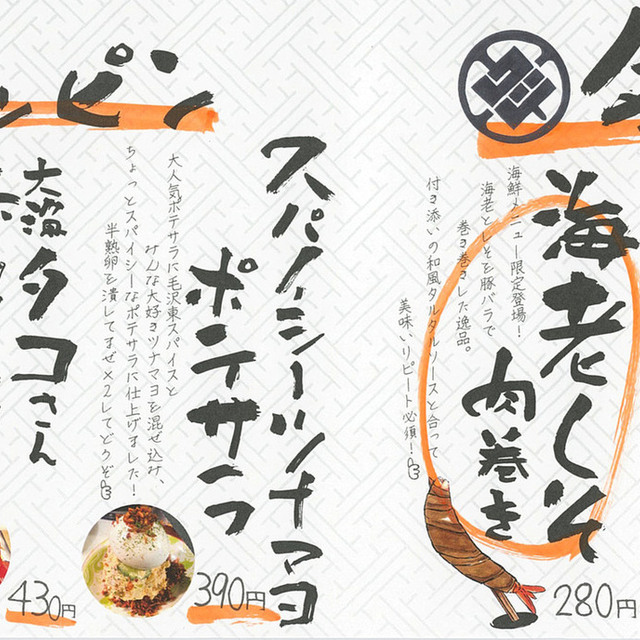 海老しそ
肉巻き
海鮮メニュー限定登場!
海老としそを豚バラで
巻き巻きした逸品。
付き添いの和風タルタルソースと合って
美味いリピート必須!
280円
ピン
スパイシーツナマヨ
ポテサラ
大人気ポテサラに毛沢東スパイスと
みんな大好きツナマヨを混ぜ込み、
ちょっとスパイシーなポテサラに仕上げました!
半熟卵を潰してまぜ×2してどうぞ
390円
タコさん
430円